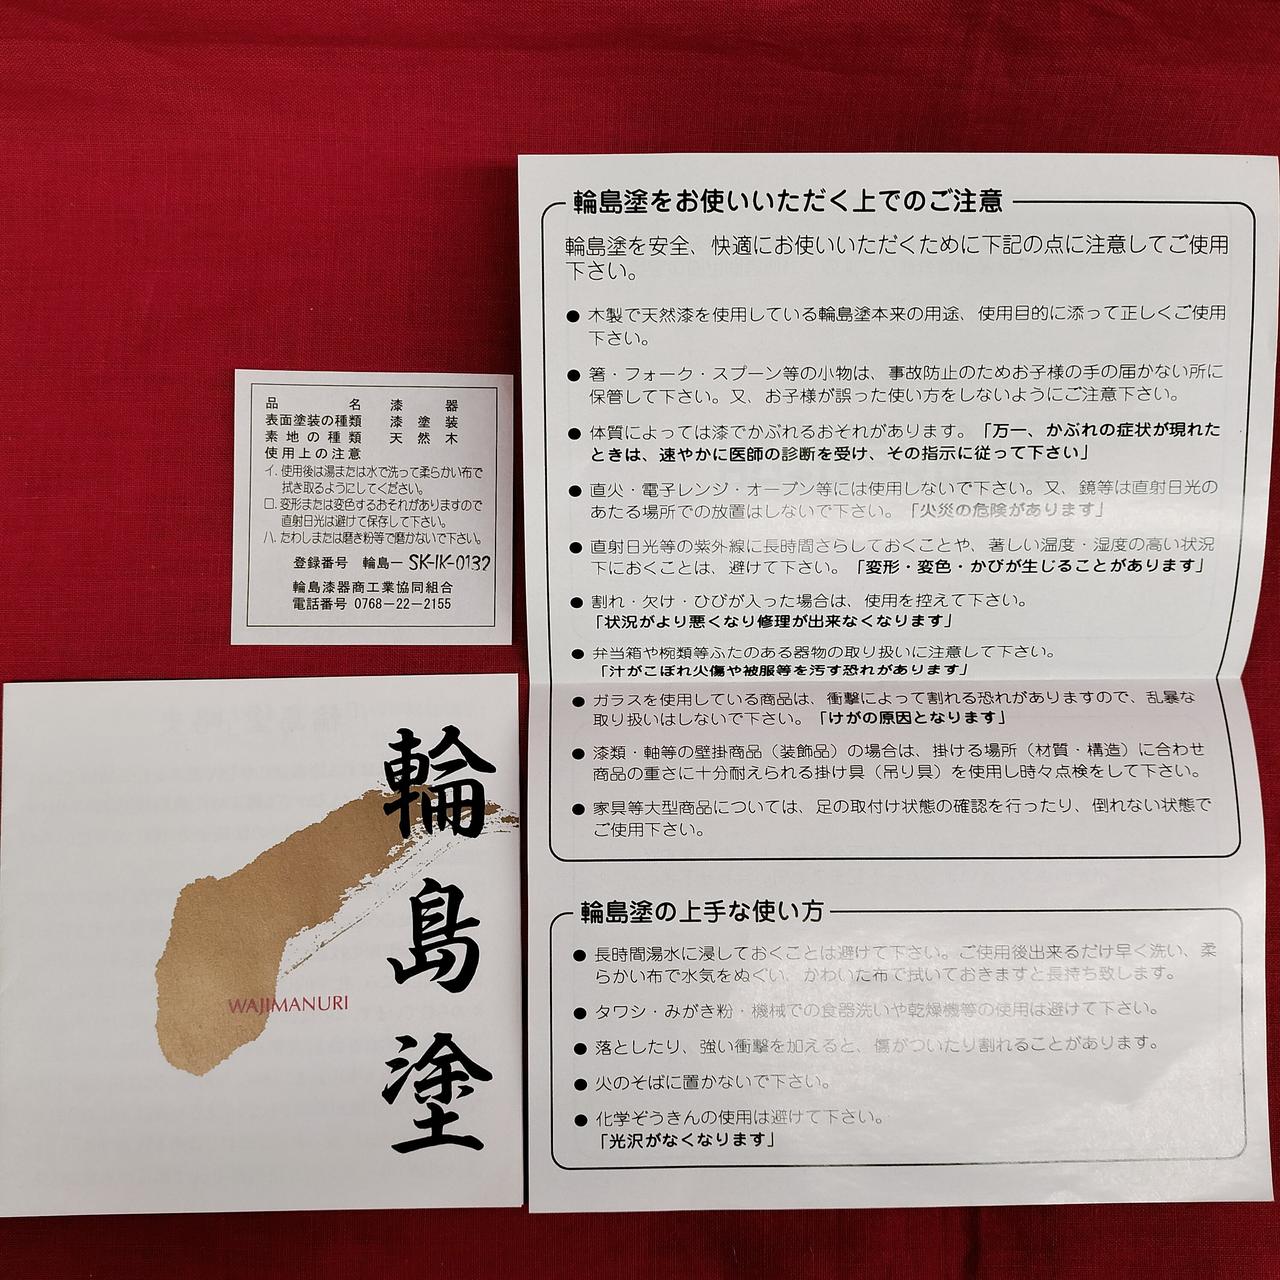 品名 漆器
表面塗装の種類 漆塗装
素地の種類 天然木
使用上の注意
イ. 使用後は湯または水で洗って柔らかい布で
拭き取るようにしてください。
ロ. 変形または変色するおそれがありますので
直射日光は避けて保存して下さい。
ハ. たわしまたは磨き粉等で磨かないで下さい。
登録番号 輪島ー SK-IK-0132
輪島漆器商工業協同組合
電話番号 0768-22-2155
輪島塗
WAJIMANURI
輪島塗をお使いいただく上でのご注意
輪島塗を安全、快適にお使いいただくために下記の点に注意してご使用
下さい。
● 木製で天然漆を使用している輪島塗本来の用途、使用目的に添って正しくご使用
下さい。
● 箸・フォーク・スプーン等の小物は、事故防止のためお子様の手の届かない所に
保管して下さい。又、お子様が誤った使い方をしないようにご注意下さい。
● 体質によっては漆でかぶれるおそれがあります。「万一、かぶれの症状が現れた
ときは、速やかに医師の診断を受け、その指示に従って下さい」
● 直火・電子レンジ・オーブン等には使用しないで下さい。又、鏡等は直射日光の
あたる場所での放置はしないで下さい。「火災の危険があります」
● 直射日光等の紫外線に長時間さらしておくことや、著しい温度・湿度の高い状況
下におくことは、避けて下さい。「変形・変色・かびが生じることがあります」
● 割れ・欠け・ひびが入った場合は、使用を控えて下さい。
「状況がより悪くなり修理が出来なくなります」
● 弁当箱や椀類等ふたのある器物の取り扱いに注意して下さい。
「汁がこぼれ火傷や被服等を汚す恐れがあります」
● ガラスを使用している商品は、衝撃によって割れる恐れがありますので、乱暴な
取り扱いはしないで下さい。「けがの原因となります」
● 漆類・軸等の壁掛商品（装飾品）の場合は、掛ける場所（材質・構造）に合わせ
商品の重さに十分耐えられる掛け具（吊り具）を使用し時々点検をして下さい。
● 家具等大型商品については、足の取付け状態の確認を行ったり、倒れない状態で
ご使用下さい。
輪島塗の上手な使い方
● 長時間湯水に浸しておくことは避けて下さい。ご使用後出来るだけ早く洗い、柔
らかい布で水気をぬぐい、かわいた布で拭いておきますと長持ち致します。
● タワシ・みがき粉・機械での食器洗いや乾燥機等の使用は避けて下さい。
● 落としたり、強い衝撃を加えると、傷がついたり割れることがあります。
● 火のそばに置かないで下さい。
● 化学ぞうきんの使用は避けて下さい。
「光沢がなくなります」